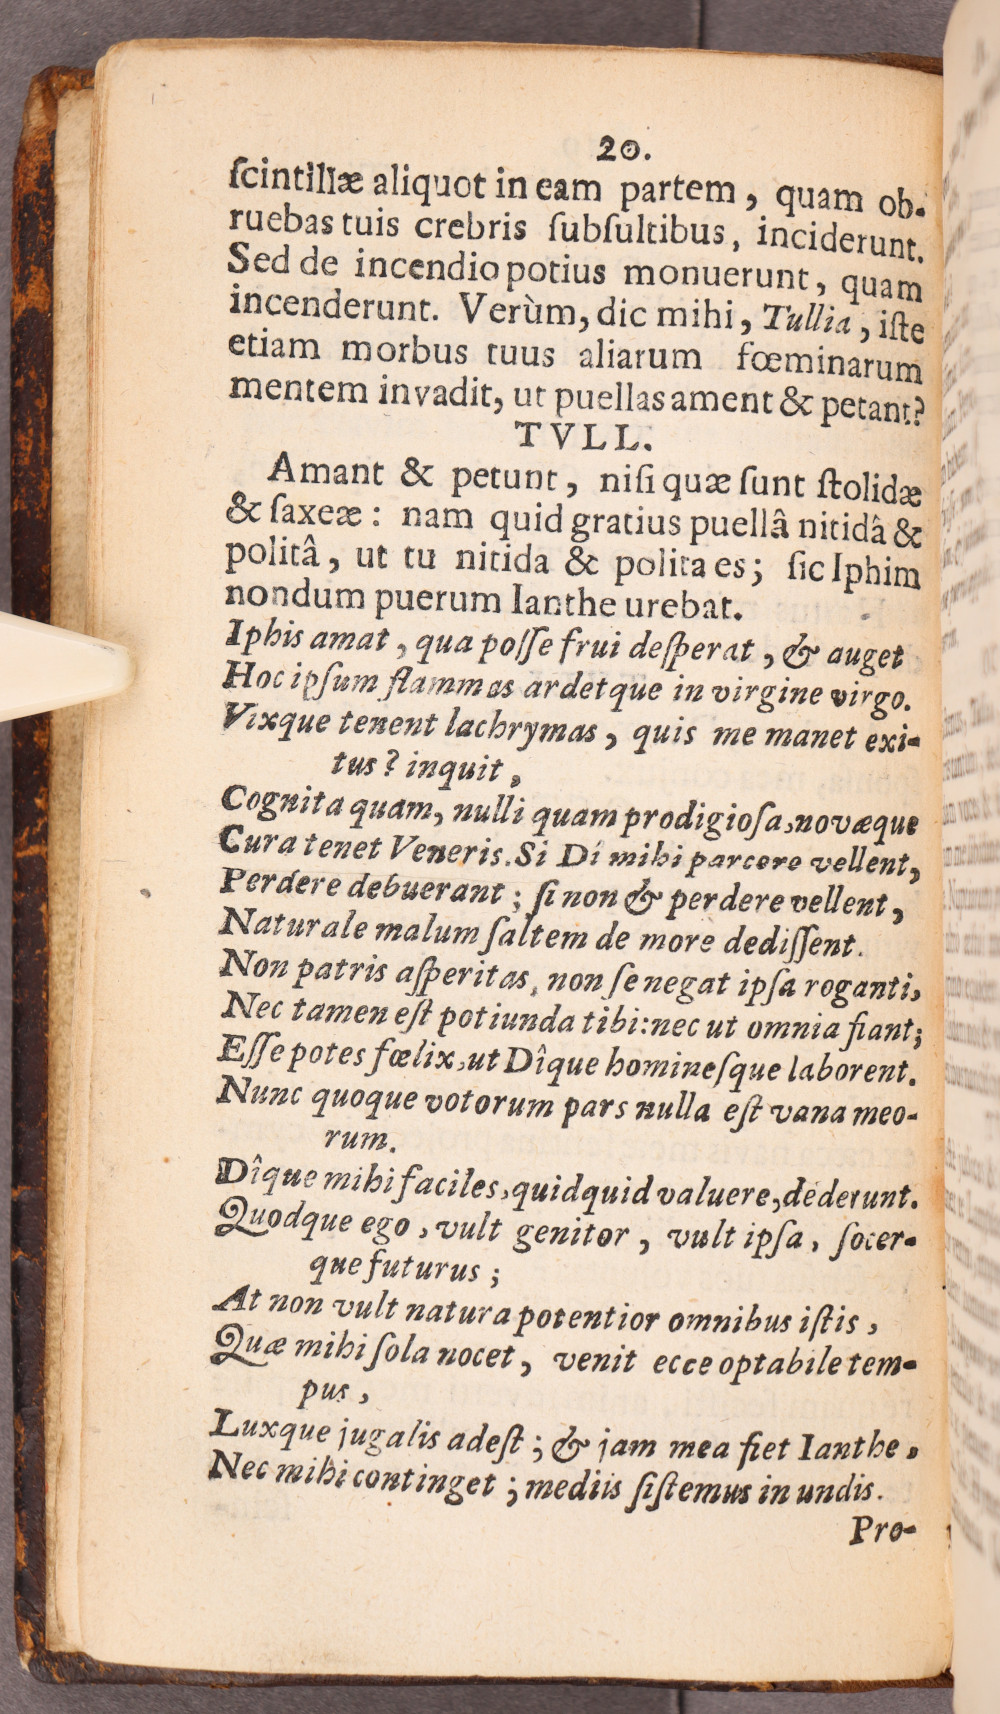 20.
ſcintillæ aliquot in eam partem, quam ob-
ruebas tuis crebris ſubſultibus, inciderunt.
Sed de incendio potius monuerunt, quam
incenderunt. Verùm, dic mihi, Tullia, iſte
etiam morbus tuus aliarum fœminarum
mentem invadit, ut puellas ament & petant?
TVLL.
Amant & petunt, niſi quæ ſunt ſtolidæ
& ſaxeæ: nam quid gratius puellâ nitidâ &
politâ, ut tu nitida & polita es; ſic Iphim
nondum puerum Ianthe urebat.
Iphis amat, qua poſſe frui deſperat, & auget
Hoc ipſum flammas ardetque in virgine virgo.
Vixque tenent lachrymas, quis me manet exi-
tus? inquit,
Cognita quam, nulli quam prodigioſa, novæque
Cura tenet Veneris. Si Dî mihi parcere vellent,
Perdere debuerant; ſi non & perdere vellent,
Naturale malum ſaltem de more dediſſent.
Non patris aſperitas, non ſe negat ipſa roganti,
Nec tamen eſt potiunda tibi: nec ut omnia fiant;
Eſſe potes fœlix, ut Dîque homineſque laborent.
Nunc quoque votorum pars nulla eſt vana meo-
rum.
Dîque mihi faciles, quidquid valuere, dederunt.
Quodque ego, vult genitor, vult ipſa, ſocer-
que futurus;
At non vult natura potentior omnibus iſtis,
Quæ mihi ſola nocet, venit ecce optabile tem-
pus,
Luxque jugalis adeſt; & jam mea fiet Ianthe,
Nec mihi continget; mediis ſiſtemus in undis.
Pro-